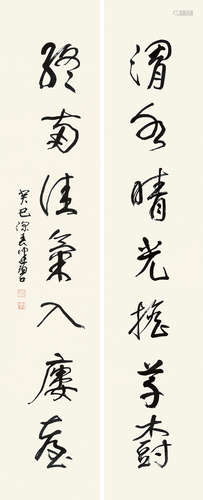 渭水晴光摇草树
终南佳气入楼台
癸巳深春